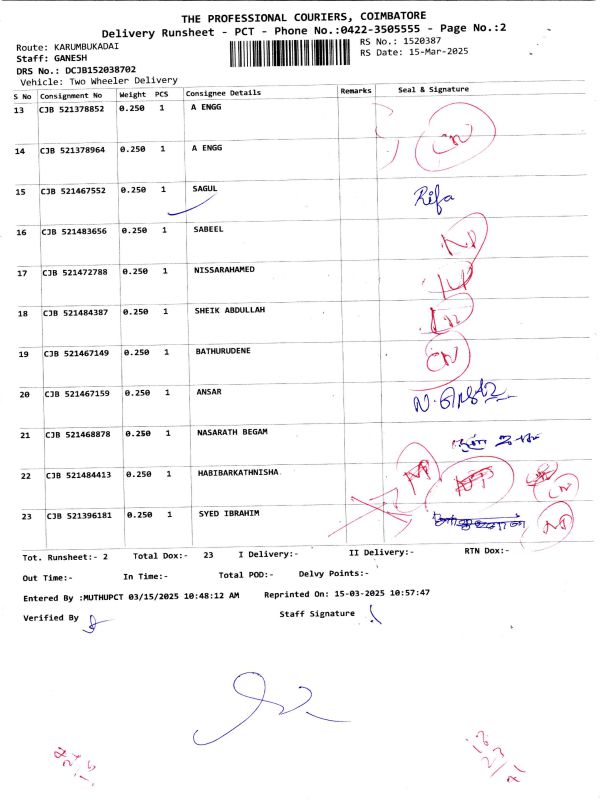 THE PROFESSIONAL COURIERS, COIMBATORE
Delivery Runsheet - PCT - Phone No.:0422-3505555 - Page No.:2
Route: KARUMBUKADAI RS No.: 1520387
Staff: GANESH RS Date: 15-Mar-2025
DRS No.: DCJB152038702
Vehicle: Two Wheeler Delivery
S No Consignment No Weight PCS Consignee Details Remarks Seal & Signature
13 CJB 521378852 0.250 1 A ENGG
14 CJB 521378964 0.250 1 A ENGG CN
15 CJB 521467552 0.250 1 SAGUL Rifa
16 CJB 521483656 0.250 1 SABEEL
17 CJB 521472788 0.250 1 NISSARAHAMED
18 CJB 521484387 0.250 1 SHEIK ABDULLAH
19 CJB 521467149 0.250 1 BATHURUDENE CN
20 CJB 521467159 0.250 1 ANSAR
21 CJB 521468878 0.250 1 NASARATH BEGAM
22 CJB 521484413 0.250 1 HABIBARKATHNISHA. CN
23 CJB 521396181 0.250 1 SYED IBRAHIM
Tot. Runsheet:- 2 Total Dox:- 23 I Delivery:- II Delivery:- RTN Dox:-
Out Time:- In Time:- Total POD:- Delvy Points:-
Entered By :MUTHUPCT 03/15/2025 10:48:12 AM Reprinted On: 15-03-2025 10:57:47
Verified By Staff Signature